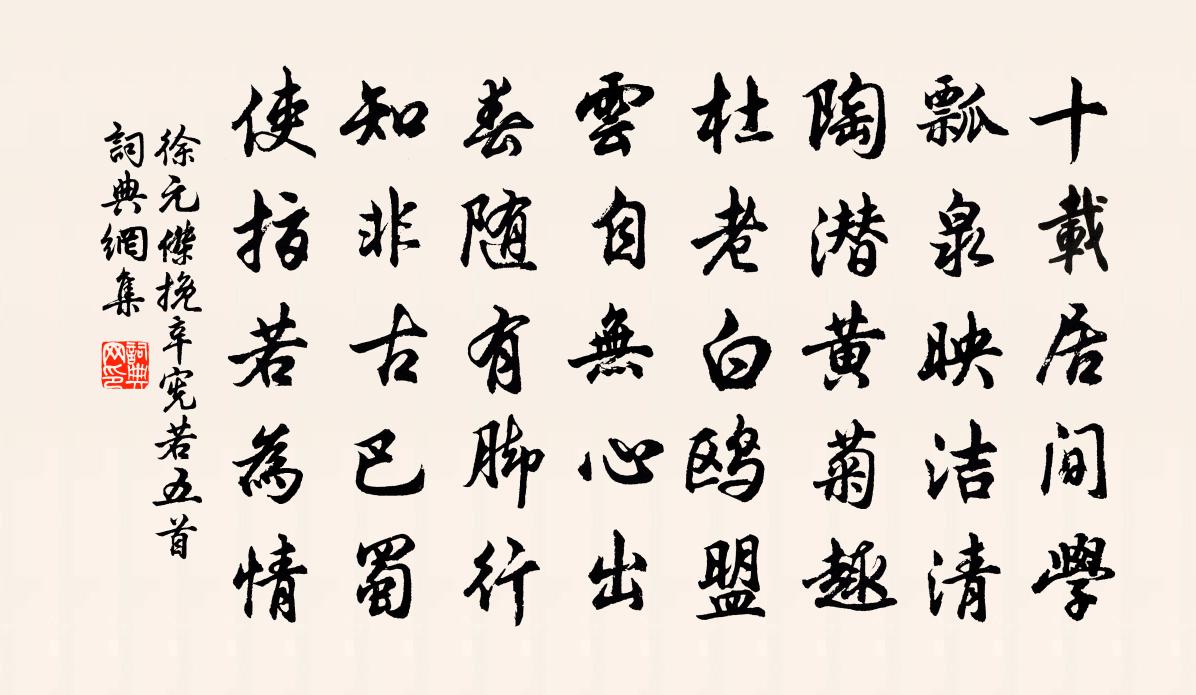 十載居间學
瓢泉映洁清
陶潜黄菊趣
杜老白鸥盟
雲自無心出
春随有脚行
知非古巴蜀
使指若為情
徐元傑挽辛宪若五首
詞典網集
詞典網印